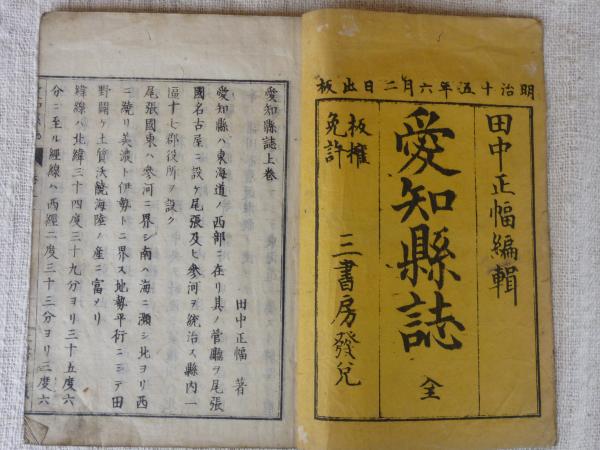 明治十五年六月二日出板
田中正幅編輯
愛知縣誌 全
板權免許
三書房發兌
愛知縣誌上卷
田中正幅 著
愛知縣ハ東海道ノ西部ニ在リ其ノ管廳ヲ尾張
國名古屋ニ設ケ尾張及ヒ參河ヲ統治ス縣內一
區十七郡役所ヲ設ク
尾張國東ハ參河ニ界シ南ハ海ニ瀕シ北ヨリ西
ニ澆リ美濃ト伊勢トニ界ス地勢平行ニシテ田
野闢ケ土質沃饒海陸ノ產ニ富メリ
緯線ハ北緯三十四度三十九分ヨリ三十五度六
分ニ至ル經線ハ西經二度三十三分ヨリ三度六